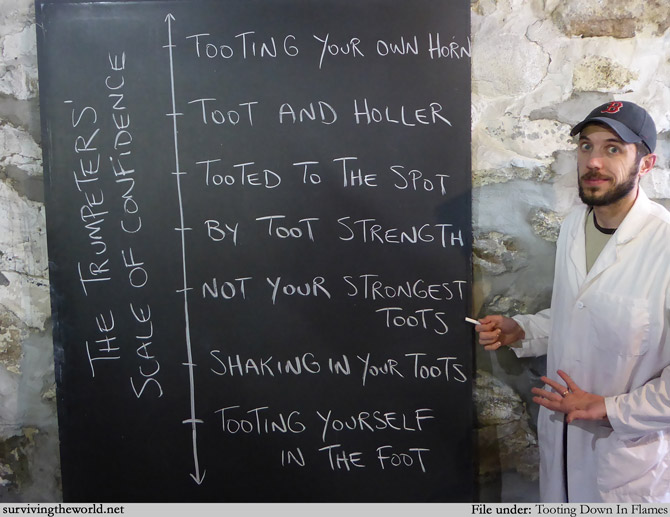 THE TRUMPETERS'
SCALE OF CONFIDENCE
TOOTING YOUR OWN HORN
TOOT AND HOLLER
TOOTED TO THE SPOT
BY TOOT STRENGTH
NOT YOUR STRONGEST
TOOTS
SHAKING IN YOUR TOOTS
TOOTING YOURSELF
IN THE FOOT
B
survivingtheworld.net
File under: Tooting Down In Flames